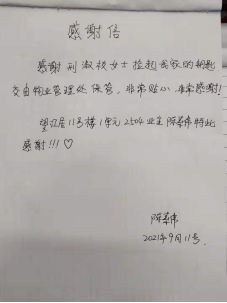 感谢信
感谢刘淑校女士捡起我家的钥匙
交由物业管理处保管，非常贴心，非常感谢！
望江居11号楼1单元2504业主陈军伟特此
感谢！！！♡
陈军伟
2021年9月11号